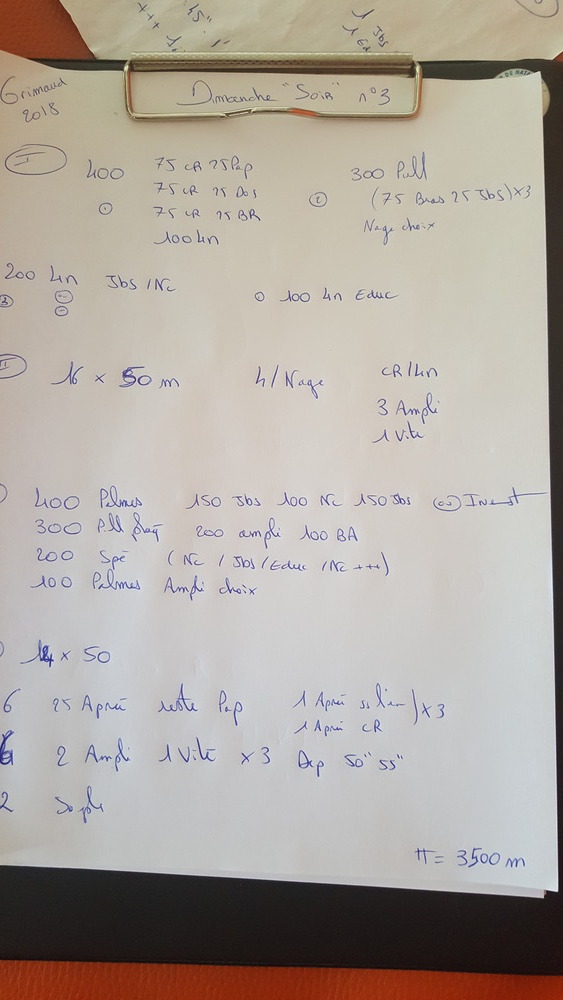 45"
+++
1 Jbs
Grimaud
2018
Dimanche "Soir" n°3
I
400 75 CR 25 Pap
75 CR 25 Dos
75 CR 25 BR
100 4n
300 Pull
(75 Bras 25 Jbs) x3
Nage choix
200 4n Jbs / Nc
100 4n Educ
II
16 x 50 m 4/Nage CR/4n
3 Ampli
1 Vite
400 Palmes 150 Jbs 100 Nc 150 Jbs
300 Pull 200 ampli 100 BA
200 Spé (Nc / Jbs / Educ / Nc +++)
100 Palmes Ampli choix
14 x 50
6 25 Apnée reste Pap 1 Apnée ss l'eau) x3
1 Apnée CR
6 2 Ampli 1 Vite x3 Dep 50" 55"
2 Souple
TT = 3500 m